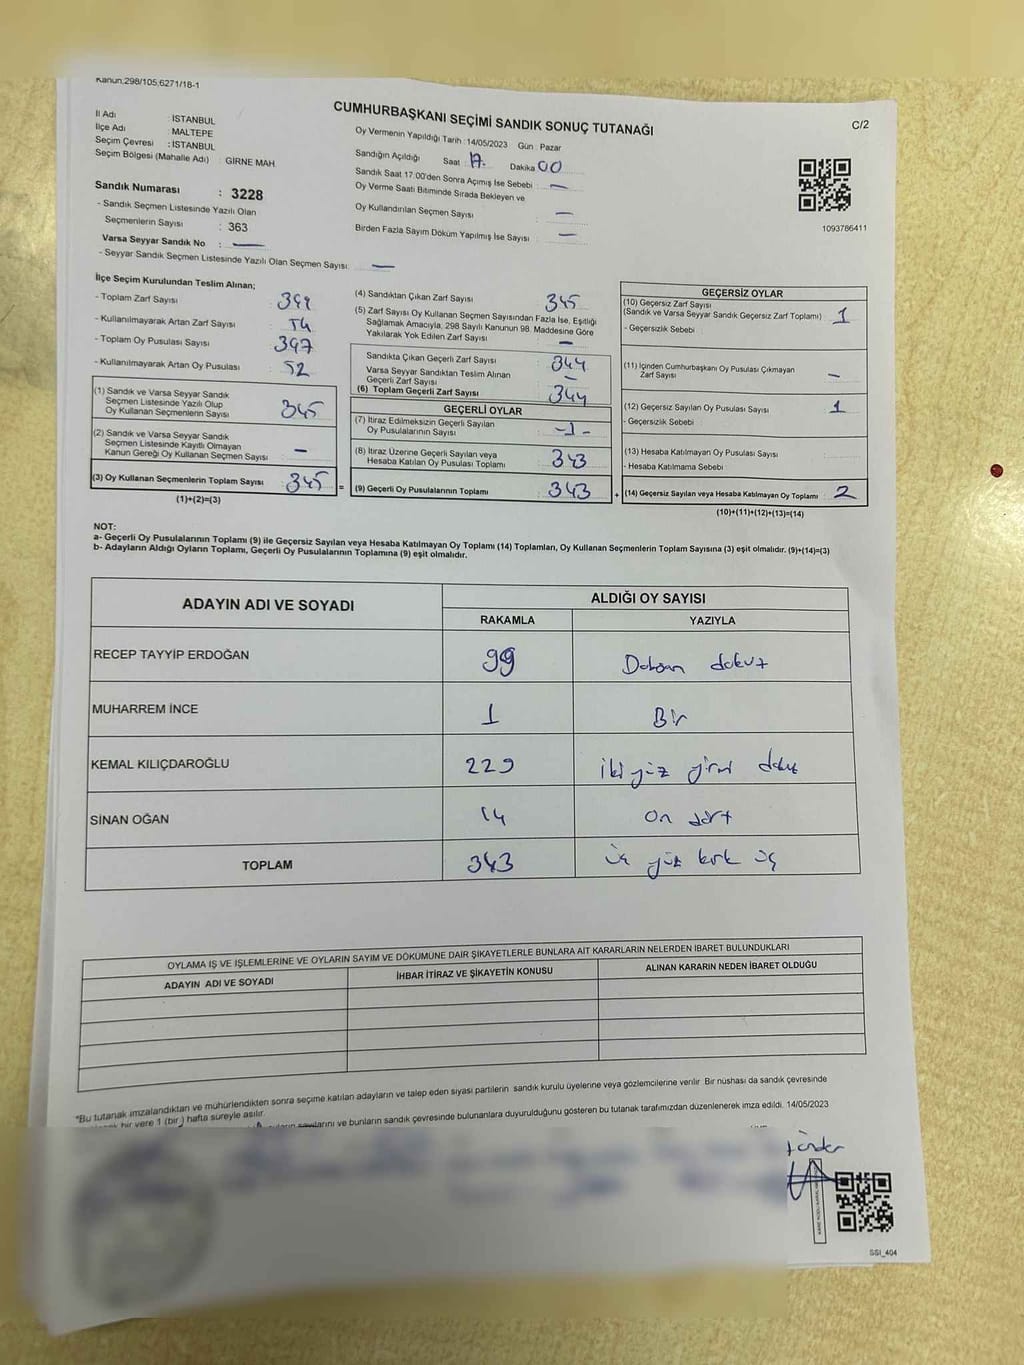 Kanun:298/105,6271/18-1
CUMHURBAŞKANI SEÇİMİ SANDIK SONUÇ TUTANAĞI
C/2
İl Adı : İSTANBUL
İlçe Adı : MALTEPE
Seçim Çevresi : İSTANBUL
Seçim Bölgesi (Mahalle Adı) : GİRNE MAH.
Sandık Numarası : 3228
- Sandık Seçmen Listesinde Yazılı Olan
Seçmenlerin Sayısı : 363
Varsa Seyyar Sandık No : —
- Seyyar Sandık Seçmen Listesinde Yazılı Olan Seçmen Sayısı: —
Oy Vermenin Yapıldığı Tarih :14/05/2023 Gün : Pazar
Sandığın Açıldığı Saat 17. Dakika 00
Sandık Saat 17:00'den Sonra Açımış İse Sebebi : —
Oy Verme Saati Bitiminde Sırada Bekleyen ve
Oy Kullandırılan Seçmen Sayısı : —
Birden Fazla Sayım Döküm Yapılmış İse Sayısı : —
1093786411
İlçe Seçim Kurulundan Teslim Alınan;
- Toplam Zarf Sayısı
- Kullanılmayarak Artan Zarf Sayısı : 54
- Toplam Oy Pusulası Sayısı : 397
- Kullanılmayarak Artan Oy Pusulası : 52
(1) Sandık ve Varsa Seyyar Sandık
Seçmen Listesinde Yazılı Olup
Oy Kullanan Seçmenlerin Sayısı : 345
(2) Sandık ve Varsa Seyyar Sandık
Seçmen Listesinde Kayıtlı Olmayan
Kanun Gereği Oy Kullanan Seçmen Sayısı : —
(3) Oy Kullanan Seçmenlerin Toplam Sayısı : 345
(1)+(2)=(3)
(4) Sandıktan Çıkan Zarf Sayısı : 345
(5) Zarf Sayısı Oy Kullanan Seçmen Sayısından Fazla İse, Eşitliği
Sağlamak Amacıyla, 298 Sayılı Kanunun 98. Maddesine Göre
Yakılarak Yok Edilen Zarf Sayısı : —
Sandıkta Çıkan Geçerli Zarf Sayısı : 344
Varsa Seyyar Sandıktan Teslim Alınan
Geçerli Zarf Sayısı : —
(6) Toplam Geçerli Zarf Sayısı : 344
GEÇERLİ OYLAR
(7) İtiraz Edilmeksizin Geçerli Sayılan
Oy Pusulalarının Sayısı : -1-
(8) İtiraz Üzerine Geçerli Sayılan veya
Hesaba Katılan Oy Pusulası Toplamı : 343
= (9) Geçerli Oy Pusulalarının Toplamı : 343
GEÇERSİZ OYLAR
(10) Geçersiz Zarf Sayısı
(Sandık ve Varsa Seyyar Sandık Geçersiz Zarf Toplamı) : 1
- Geçersizlik Sebebi :
(11) İçinden Cumhurbaşkanı Oy Pusulası Çıkmayan
Zarf Sayısı : —
(12) Geçersiz Sayılan Oy Pusulası Sayısı : 1
- Geçersizlik Sebebi :
(13) Hesaba Katılmayan Oy Pusulası Sayısı :
- Hesaba Katılmama Sebebi :
+ (14) Geçersiz Sayılan veya Hesaba Katılmayan Oy Toplamı : 2
(10)+(11)+(12)+(13)=(14)
NOT:
a- Geçerli Oy Pusulalarının Toplamı (9) ile Geçersiz Sayılan veya Hesaba Katılmayan Oy Toplamı (14) Toplamları, Oy Kullanan Seçmenlerin Toplam Sayısına (3) eşit olmalıdır. (9)+(14)=(3)
b- Adayların Aldığı Oyların Toplamı, Geçerli Oy Pusulalarının Toplamına (9) eşit olmalıdır.
ADAYIN ADI VE SOYADI ALDIĞI OY SAYISI
RAKAMLA YAZIYLA
RECEP TAYYİP ERDOĞAN 99 Doksan dokuz
MUHARREM İNCE 1 Bir
KEMAL KILIÇDAROĞLU 229 iki yüz yirmi dokuz
SİNAN OĞAN 14 on dört
TOPLAM 343 üç yüz kırk üç
OYLAMA İŞ VE İŞLEMLERİNE VE OYLARIN SAYIM VE DÖKÜMÜNE DAİR ŞİKAYETLERLE BUNLARA AİT KARARLARIN NELERDEN İBARET BULUNDUKLARI
ADAYIN ADI VE SOYADI İHBAR İTİRAZ VE ŞİKAYETİN KONUSU ALINAN KARARIN NEDEN İBARET OLDUĞU
*Bu tutanak imzalandıktan ve mühürlendikten sonra seçime katılan adayların ve talep eden siyasi partilerin sandık kurulu üyelerine veya gözlemcilerine verilir. Bir nüshası da sandık çevresinde
bir yere 1 (bir ) hafta süreyle asılır.
sayılarını ve bunların sandık çevresinde bulunanlara duyurulduğunu gösteren bu tutanak tarafımızdan düzenlenerek imza edildi. 14/05/2023
SSİ_404